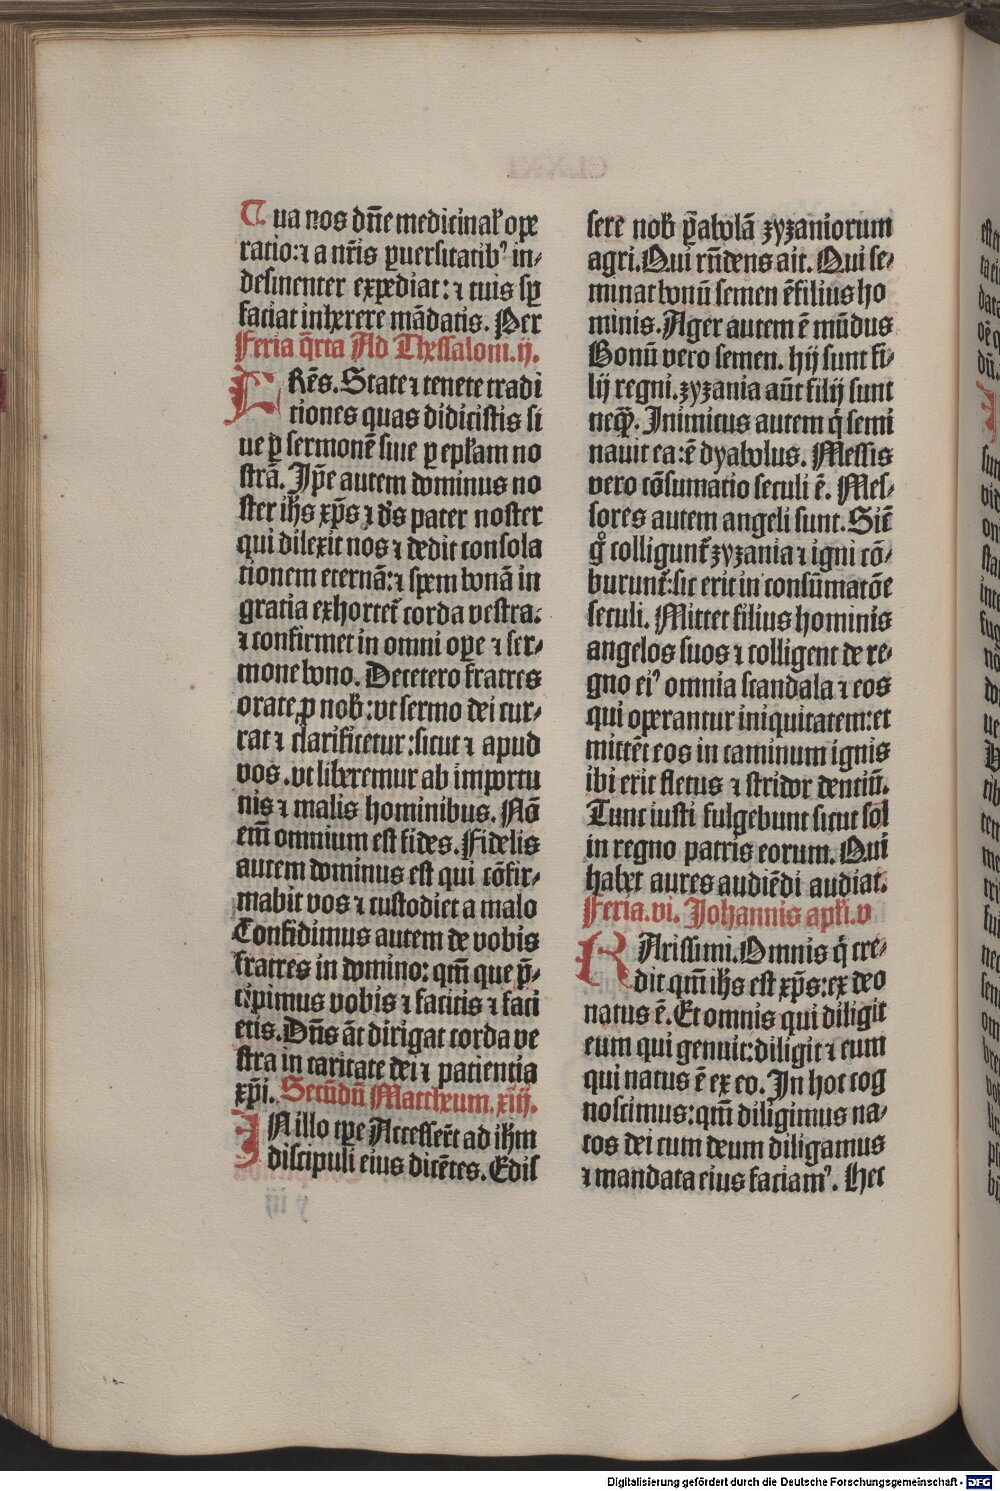 Tua nos dn̄e medicinal' oꝑe
ratio: ⁊ a nr̄is ꝑuersitatibꝰ in⸗
desinenter exꝑediat: ⁊ tuis sꝑ
faciat inherere mādatis. Per
Feria q̄rta Ad Thessaloni. ij.
FRēs. State ⁊ tenete tradi
tiones quas didicistis si
ue ꝑ sermonē siue ꝑ epl̄am no
strā. Ip̄e autem dominus no
ster ih̄s xp̄s ⁊ d's pater noster
qui dilexit nos ⁊ dedit consola
tionem eternā: ⁊ spem bonā in
gratia exhortet' corda vestra:
⁊ confirmet in omni oꝑe ⁊ ser⸗
mone bono. De cetero fratres
orate ꝓ nob': vt sermo dei cur⸗
rat ⁊ clarificetur: sicut ⁊ apud
vos. vt liberemur ab importu
nis ⁊ malis hominibus. Nō
em̄ omnium est fides. Fidelis
autem dominus est qui cōfir⸗
mabit vos ⁊ custodiet a malo
Confidimus autem de vobis
fratres in domino: qm̄ que p̄⸗
cipimus vobis ⁊ facitis ⁊ faci
etis. Dn̄s āt dirigat corda ve
stra in caritate dei ⁊ patientia
xp̄i. Secūdū Mattheum. xiij.
IN illo tꝑe Accesser̄t ad ih̄m
discipuli eius dicētes. Edis
sere nob' ꝑabolā zyzaniorum
agri. Qui rn̄dens ait. Qui se⸗
minat bonū semen ē filius ho
minis. Ager autem ē mūdus
Bonū vero semen. hij sunt fi⸗
lij regni. zyzania aūt filij sunt
neqȝ. Inimicus autem q̇ semi
nauit ea: ē dyabolus. Messis
vero cōsumatio seculi ē. Mes⸗
sores autem angeli sunt. Sic̄
gͦ colligunt' zyzania ⁊ igni cō⸗
burunt': sic erit in consūmatōe
seculi. Mittet filius hominis
angelos suos ⁊ colligent de re⸗
gno eiꝰ omnia scandala ⁊ eos
qui operantur iniquitatem: et
mittēt eos in caminum ignis
ibi erit fletus ⁊ stridor dentiū.
Tunc iusti fulgebunt sicut sol
in regno patris eorum. Qui
habet aures audiēdi audiat.
Feria. vi. Johannis apl'i. v
KArissimi. Omnis q̇ cre⸗
dit qm̄ ih̄s est xp̄s: ex deo
natus ē. Et omnis qui diligit
eum qui genuit: diligit ⁊ eum
qui natus ē ex eo. In hoc cog
noscimus: qm̄ diligimus na⸗
tos dei cum deum diligamus
⁊ mandata eius faciamꝰ. Hec
Digitalisierung gefördert durch die Deutsche Forschungsgemeinschaft - DFG